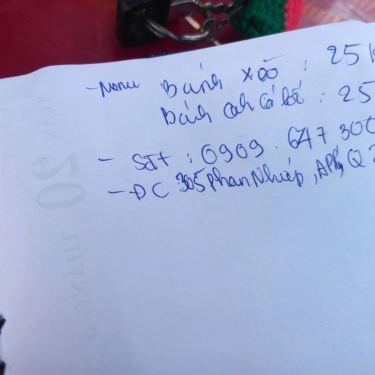 - Menu Bánh xèo : 25k
Bánh canh cá lóc : 25
- SĐT : 0909. 647 300
- ĐC 305 Phan Nhiáp, APĐ, Q2
TUẦN 20 THÁNG 5